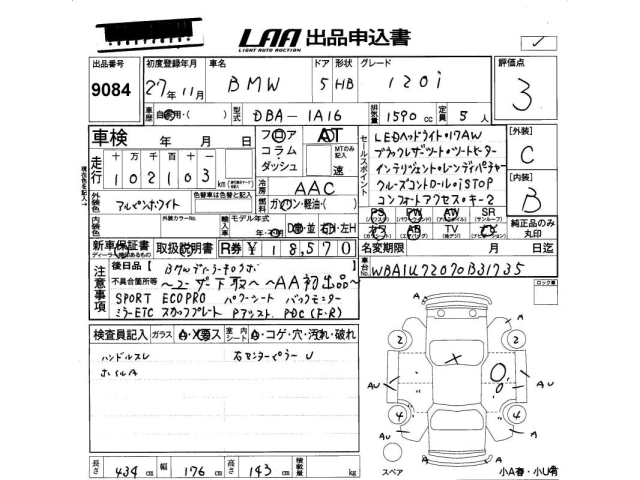 LAA 出品申込書
LIGHT AUTO AUCTION
出品番号 初度登録年月 車名 ドア 形状 グレード 評価点
9084 27年11月 BMW 5 HB 120i 3
車歴 自家用・( ) 型式 DBA-1A16 排気量 1590 cc 定員 5 人
車検 年 月 日 フロア コラム・ダッシュ AT MTのみ記入 速
走行 十万千百十 102103 km
冷房 AAC
外装色 アルピンホワイト 外装カラーNo. 色替車は色替と記入 燃料 ガソリン・軽油・( )
輸入車 モデル年式 年・不明 D車・並 右H・左H
セールスポイント
LEDヘッドライト・17AW
ブラックレザーシート・シートヒーター
インテリジェント・レーンディパーチャー
クルーズコントロール・iSTOP
コンフォートアクセス・キー2
PS PW AW SR
カワ AB TV ナビ
純正品のみ丸印
[外装]
C
[内装]
B
新車保証書 取扱説明書 R券 ¥18,570
名変期限 月 日迄
車台No. WBA1U72070B31735
注意事項 後日品( )
不具合箇所等
〜ユーザー下取〜 〜AA初出品〜
SPORT ECOPRO パワーシート バックモニター
ミラーETC スカッフプレート Pアシスト PDC(F・R)
検査員記入 ガラス A・X・ヒス 室内シート A・コゲ・穴・汚れ・破れ
ハンドルスレ 右センターピラー U
ホイルA
長さ 434 cm 幅 176 cm 高さ 143 cm 積載量 kg
ロック車
A A
2 2
AU AU
4 4
AU AU
A A
スペア 小A春・小U有